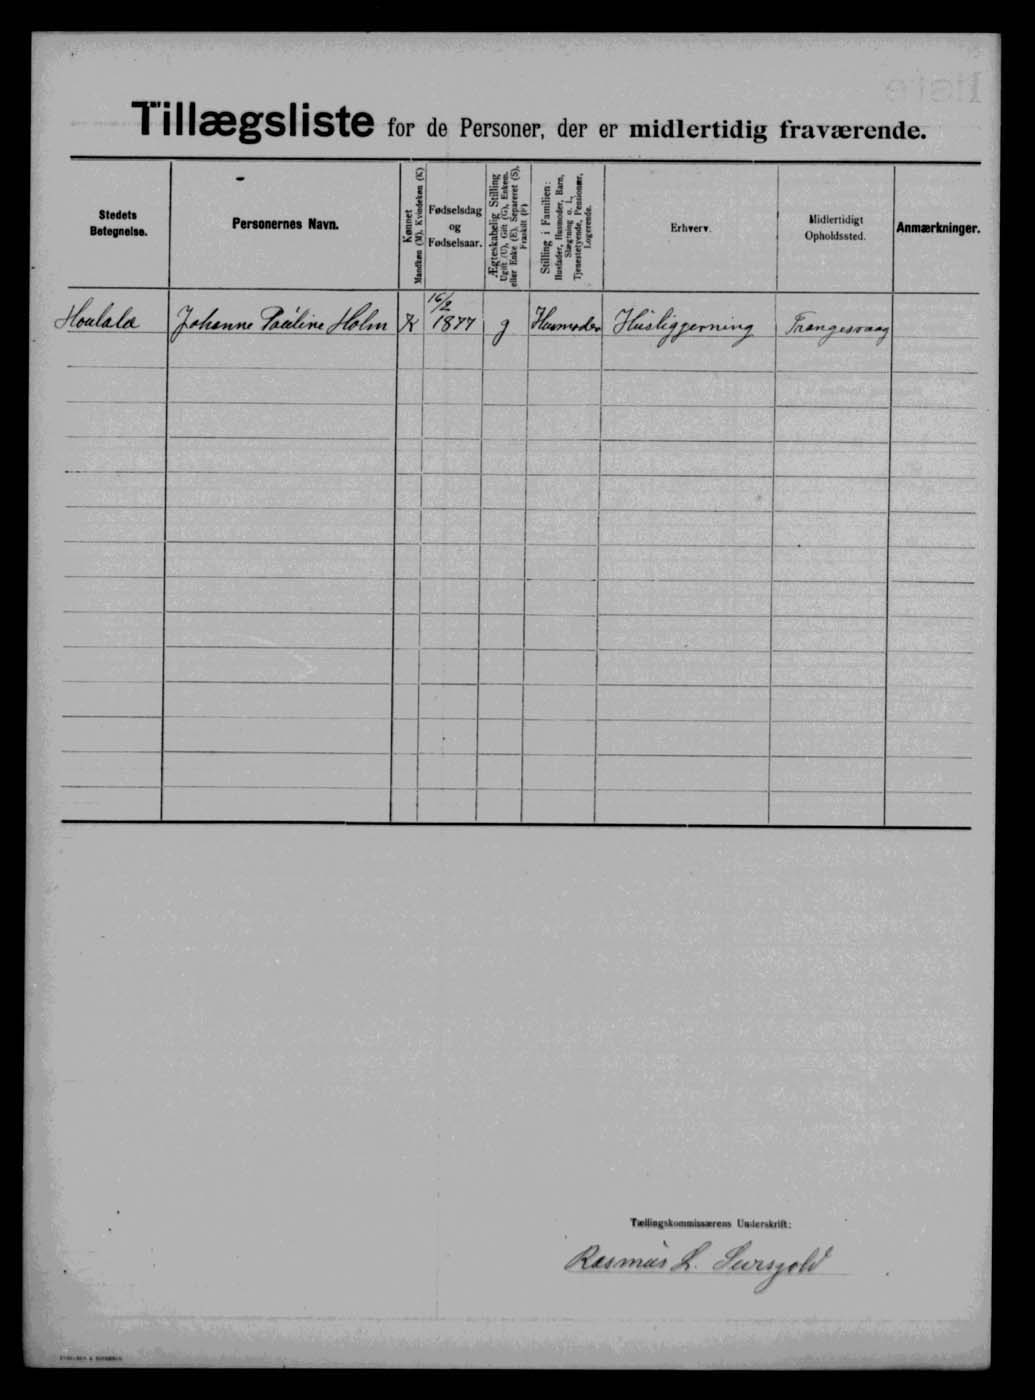 Tillægsliste for de Personer, der er midlertidig fraværende.
Stedets Betegnelse.
Personernes Navn.
Kønnet
Mandkøn (M), Kvindekøn (K)
Fødselsdag
og
Fødselsaar.
Ægteskabelig Stilling
Ugift (U), Gift (G), Enkem.
eller Enke (E), Separeret (S),
Fraskilt (F)
Stilling i Familien:
Husfader, Husmoder, Barn,
Slægtning o. l.,
Tjenestetyende, Pensionær,
Logerende.
Erhverv.
Midlertidigt
Opholdssted.
Anmærkninger.
Johanne Pauline Holm K 16/2 1877 g Husmoder Husliggerning Trangesvaag
Tællingskommissærens Underskrift:
Rasmus L.